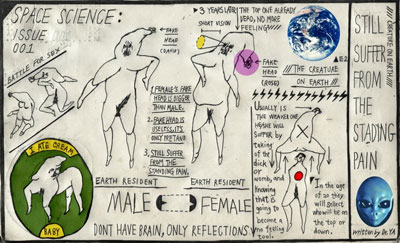 SPACE SCIENCE:
ISSUE
001
BATTLE FOR SEX
FAKE
HEAD
3 YEARS LATER
THE TOP ONE ALREADY
DEAD, NO MORE
FEELING
SHORT VISION
FAKE
HEAD
(ROSE)
/// THE CREATURE
ON EARTH ///
1. FEMALE'S FAKE
HEAD IS BIGGER
THAN MALE.
2. FAKE HEAD IS
USELESS, IT'S
ONLY PRETAND
3. STILL SUFFER
FROM THE
STANDING PAIN.
EARTH RESIDENT
EARTH RESIDENT
MALE
FEMALE
DONT HAVE BRAIN, ONLY REFLECTIONS
I ATE CREAM
BABY
Usually is
the weaker one
He/she will
suffer by
taking
of the
womb, and
knowing
that is
going to
become a
no feeling
tool.
In the age
of 20 they
will select
who will be on
the top or
down.
STILL
SUFFER
FROM
THE
STADING
PAIN
CREATURE ON EARTH
written by Dr. YA